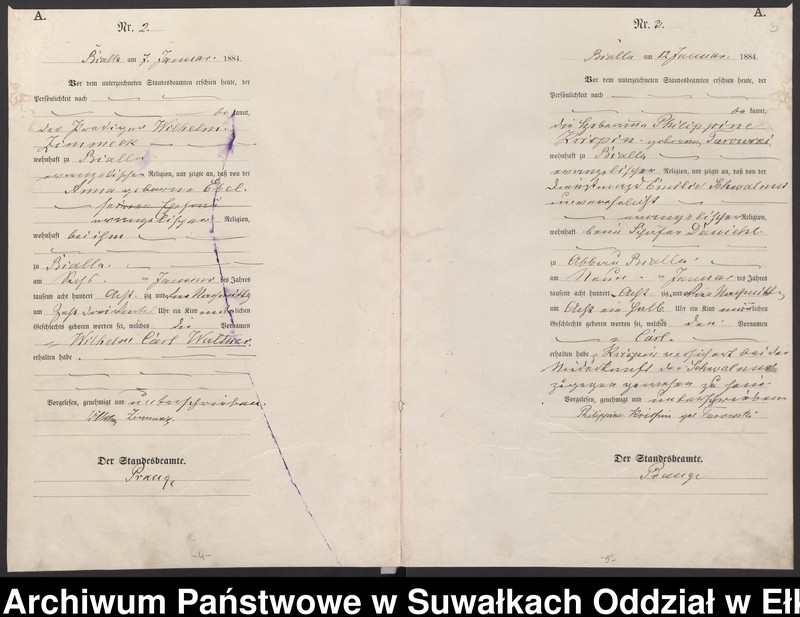 A.
Nr. 2.
Bialla am 7. Januar. 1884.
Vor dem unterzeichneten Standesbeamten erschien heute, der
Persönlichkeit nach
be kannt,
der Prediger Wilhelm
Zimmeck
wohnhaft zu Bialla
evangelischer Religion, und zeigte an, daß von der
Anna geborene
evangelischer Religion,
wohnhaft bei ihm
zu Bialla
am Sechs Januar des Jahres
tausend acht hundert Acht zig und vier Nachmittags
um Uhr ein Kind männlichen
Geschlechts geboren worden sei, welches die Vornamen
Wilhelm Carl Walther
erhalten habe
Vorgelesen, genehmigt und unterschrieben.
Der Standesbeamte.
Prange
-4-
A.
3
Nr. 3.
Bialla am 12 Januar. 1884
Vor dem unterzeichneten Standesbeamten erschien heute, der
Persönlichkeit nach
be kannt,
die Hebamme Philippine
Krispin geborene Turowski
wohnhaft zu Bialla
evangelischer Religion, und zeigte an, daß von der
Dienstmagd Emilie
unverehelicht
evangelischer Religion,
wohnhaft beim
zu Abbau Bialla
am Neun Januar des Jahres
tausend acht hundert Acht zig und vier Nachmittags
um Acht ein halb Uhr ein Kind männlichen
Geschlechts geboren worden sei, welches den Vornamen
Carl
erhalten habe Krispin versichert bei der
Niederkunft der
zugegen gewesen zu sein.
Vorgelesen, genehmigt und unterschrieben
Philippine Krispin geb Turowski
Der Standesbeamte.
Prange
-5-
Archiwum Państwowe w Suwałkach Oddział w Eł